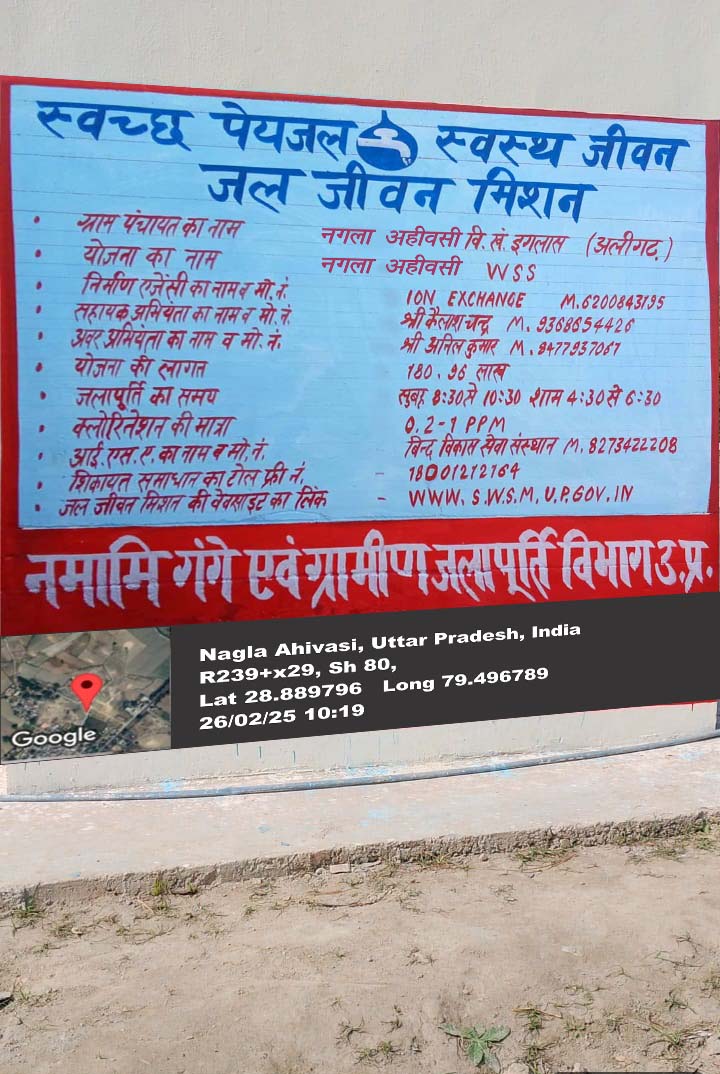 स्वच्छ पेयजल स्वस्थ जीवन
जल जीवन मिशन
• ग्राम पंचायत का नाम नगला अहीवसी वि. खं. इगलास (अलीगढ़)
• योजना का नाम नगला अहीवसी WSS
• निर्माण एजेंसी का नाम व मो. नं. ION EXCHANGE M. 6200843195
• सहायक अभियंता का नाम व मो. नं. श्री कैलाश चन्द्र M. 9368654426
• अवर अभियंता का नाम व मो. नं. श्री अनिल कुमार M. 9477937067
• योजना की लागत 180.96 लाख
• जलापूर्ति का समय सुबह 8:30 से 10:30 शाम 4:30 से 6:30
• क्लोरिनेशन की मात्रा 0.2-1 PPM
• आई. एस. ए. का नाम व मो. नं. बिन्द विकास सेवा संस्थान M. 8273422208
• शिकायत समाधान का टोल फ्री नं. - 18001212164
• जल जीवन मिशन की वेबसाइट का लिंक - WWW. S.W.S.M. U.P.GOV.IN
नमामि गंगे एवं ग्रामीण जलापूर्ति विभाग उ.प्र.
Nagla Ahivasi, Uttar Pradesh, India
R239+x29, Sh 80,
Lat 28.889796 Long 79.496789
26/02/25 10:19
Google